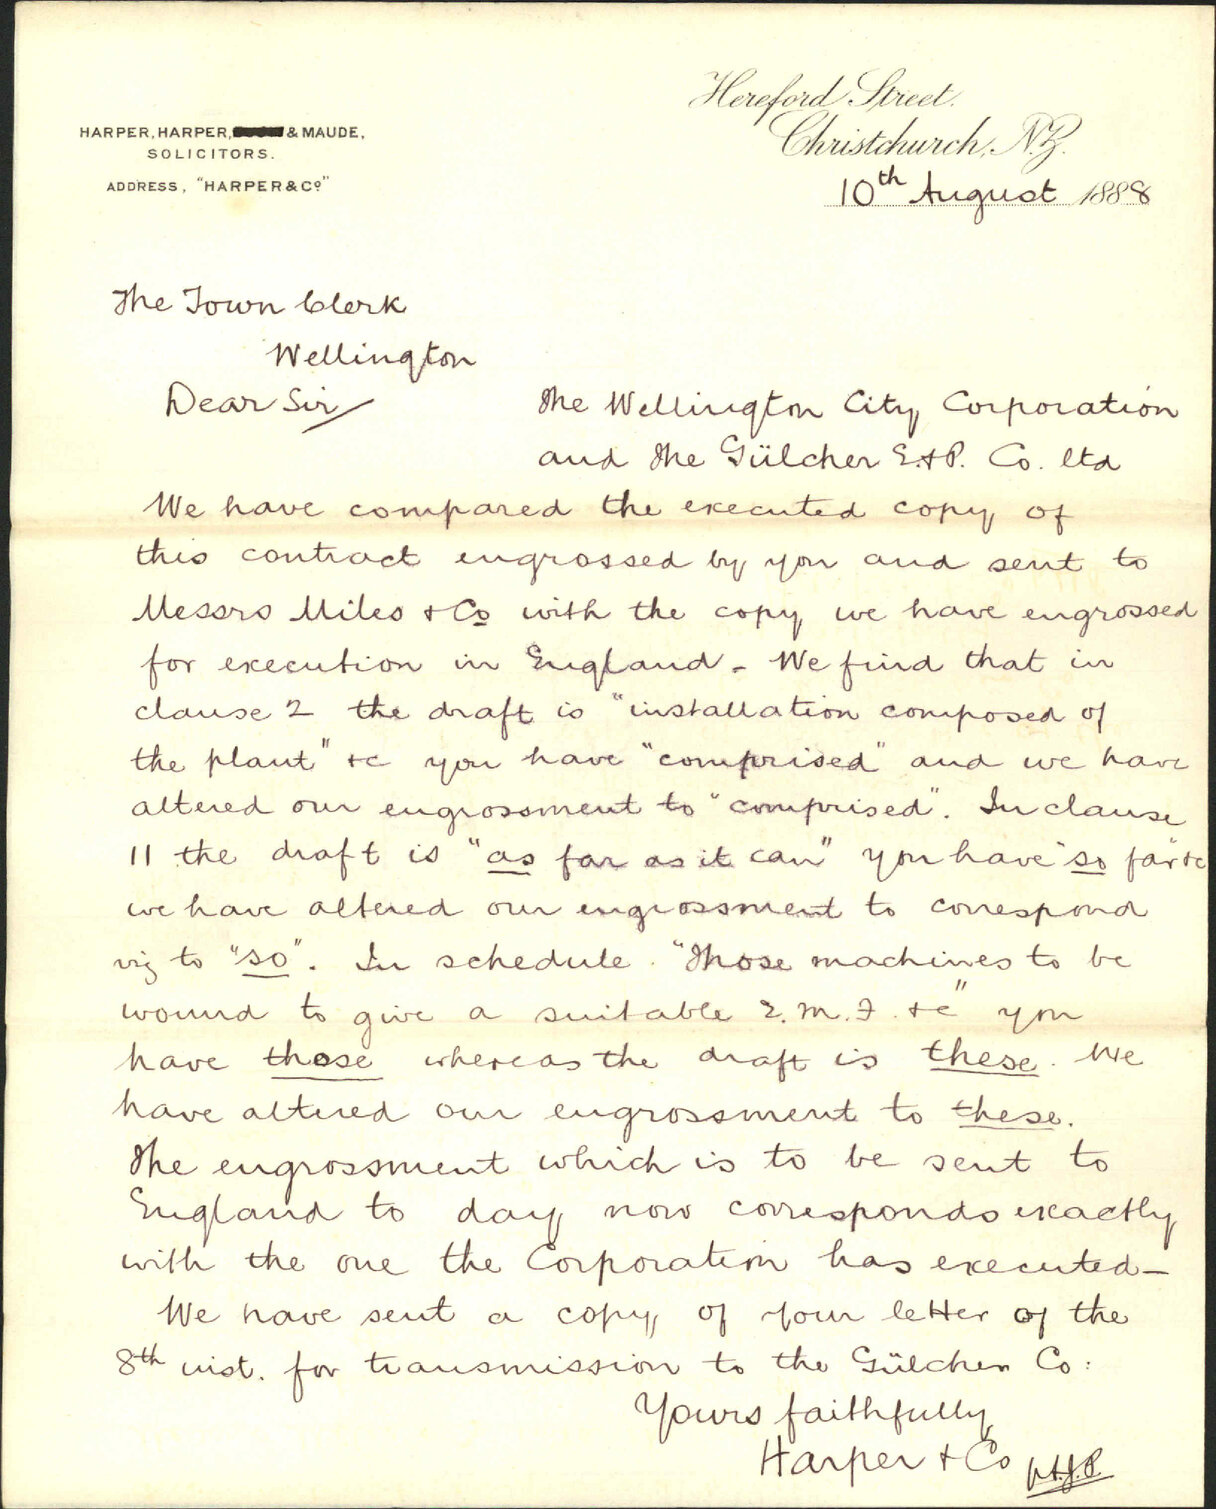 Hereford Street.
HARPER, HARPER, & MAUDE,
Christchurch, N.Z.
SOLICITORS.
ADDRESS, "HARPER & Co"
10th August 1888
The Town Clerk
Wellington
Dear Sir/
The Wellington City Corporation
and the Gülcher E.+P. Co. ltd
We have compared the executed copy of
this contract engrossed by you and sent to
Messrs Miles + Co with the copy we have engrossed
for execution in England - We find that in
clause 2 the draft is "installation composed of
the plant" +c you have "comprised" and we have
altered our engrossment to "comprised". In clause
11 the draft is "as far as it can" you have "so far" +c
we have altered our engrossment to correspond
viz to "so". In schedule. "Those machines to be
wound to give a suitable E.M.F. +c" you
have those whereas the draft is these. We
have altered our engrossment to these.
The engrossment which is to be sent to
England to day now corresponds exactly
with the one the Corporation has executed -
We have sent a copy of your letter of the
8th inst. for transmission to the Gülcher Co:
Yours faithfully
Harper + Co